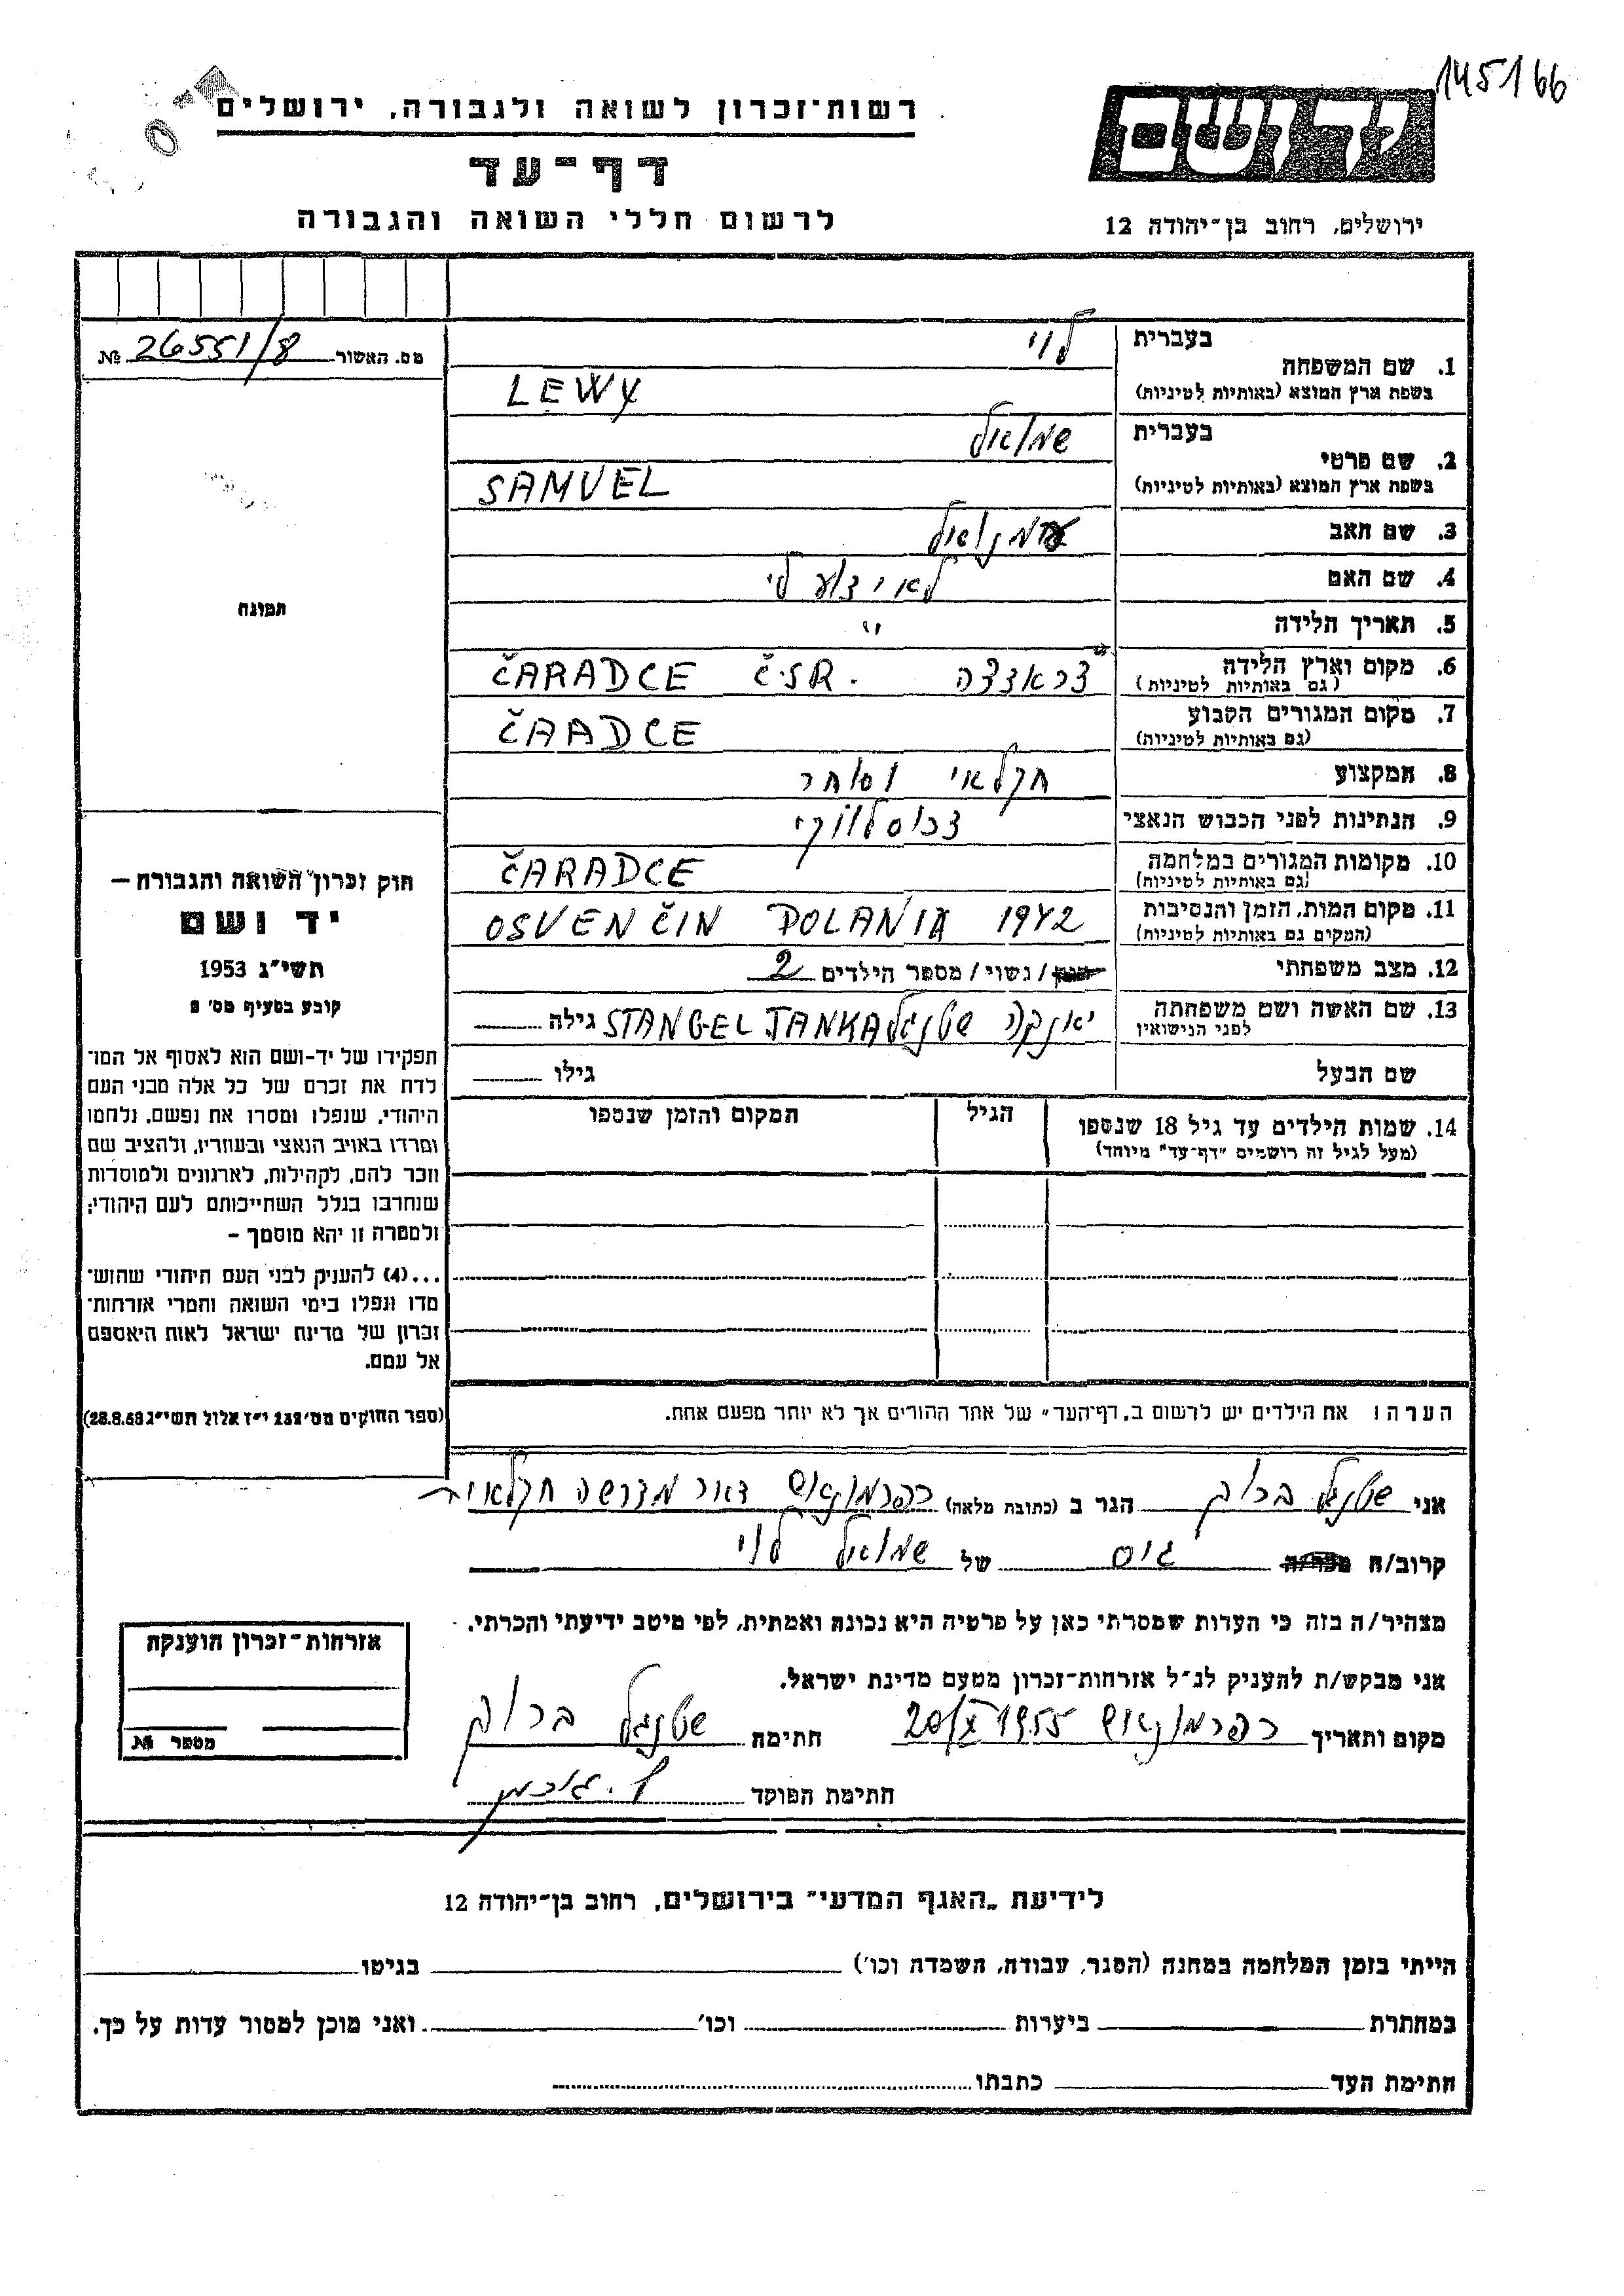 145166
רשות־זכרון לשואה ולגבורה, ירושלים
דף־עד
לרשום חללי השואה והגבורה
יד ושם
ירושלים, רחוב בן־יהודה 12
מס. האשור 26551/8 №
1. שם המשפחה
בעברית לוי
בשפת ארץ המוצא (באותיות לטיניות) LEWY
2. שם פרטי
בעברית שמואל
בשפת ארץ המוצא (באותיות לטיניות) SAMUEL
3. שם האב עמנואל
4. שם האם
5. תאריך הלידה
6. מקום וארץ הלידה ČARADCE Č.S.R.
(גם באותיות לטיניות)
7. מקום המגורים הקבוע ČAADCE
(גם באותיות לטיניות)
8. המקצוע חקלאי וסוחר
9. הנתינות לפני הכבוש הנאצי
10. מקומות המגורים במלחמה ČARADCE
(גם באותיות לטיניות)
11. מקום המות, הזמן והנסיבות OSVENČIN POLANIA 1942
(המקום גם באותיות לטיניות)
12. מצב משפחתי רווק / נשוי / מספר הילדים 2
13. שם האשה ושם משפחתה יאנקה שטנגל STANGEL JANKA גילה
לפני הנישואין
שם הבעל גילו
14. שמות הילדים עד גיל 18 שנספו הגיל המקום והזמן שנספו
(מעל לגיל זה רושמים "דף־עד" מיוחד)
הערה: את הילדים יש לרשום ב„דף־העד" של אחד ההורים אך לא יותר מפעם אחת.
תמונה
חוק זכרון השואה והגבורה —
יד ושם
תשי"ג 1953
קובע בסעיף מס' 2
תפקידו של יד-ושם הוא לאסוף אל המו־
לדת את זכרם של כל אלה מבני העם
היהודי, שנפלו ומסרו את נפשם, נלחמו
ומרדו באויב הנאצי ובעוזריו, ולהציב שם
וזכר להם, לקהילות, לארגונים ולמוסדות
שנחרבו בגלל השתייכותם לעם היהודי;
ולמטרה זו יהא מוסמך —
...(4) להעניק לבני העם היהודי שהוש־
מדו ונפלו בימי השואה והמרי אזרחות־
זכרון של מדינת ישראל לאות היאספם
אל עמם.
(ספר החוקים מס' 132 י"ז אלול תשי"ג 28.8.53)
אני שטנגל ברוך הגר ב (כתובת מלאה) דואר מדרשה חקלאית
קרוב/ה מכר/ה גיס של שמואל לוי
מצהיר/ה בזה כי העדות שמסרתי כאן על פרטיה היא נכונה ואמתית, לפי מיטב ידיעתי והכרתי.
אני מבקש/ת להעניק לנ"ל אזרחות־זכרון מטעם מדינת ישראל.
מקום ותאריך 20/X 1955 חתימה שטנגל ברוך
חתימת הפוקד
אזרחות־זכרון הוענקה
מספר №
לידיעת „האגף המדעי" בירושלים, רחוב בן־יהודה 12
הייתי בזמן המלחמה במחנה (הסגר, עבודה, השמדה וכו') בגיטו
במחתרת ביערות וכו' ואני מוכן למסור עדות על כך.
חתימת העד כתבתו